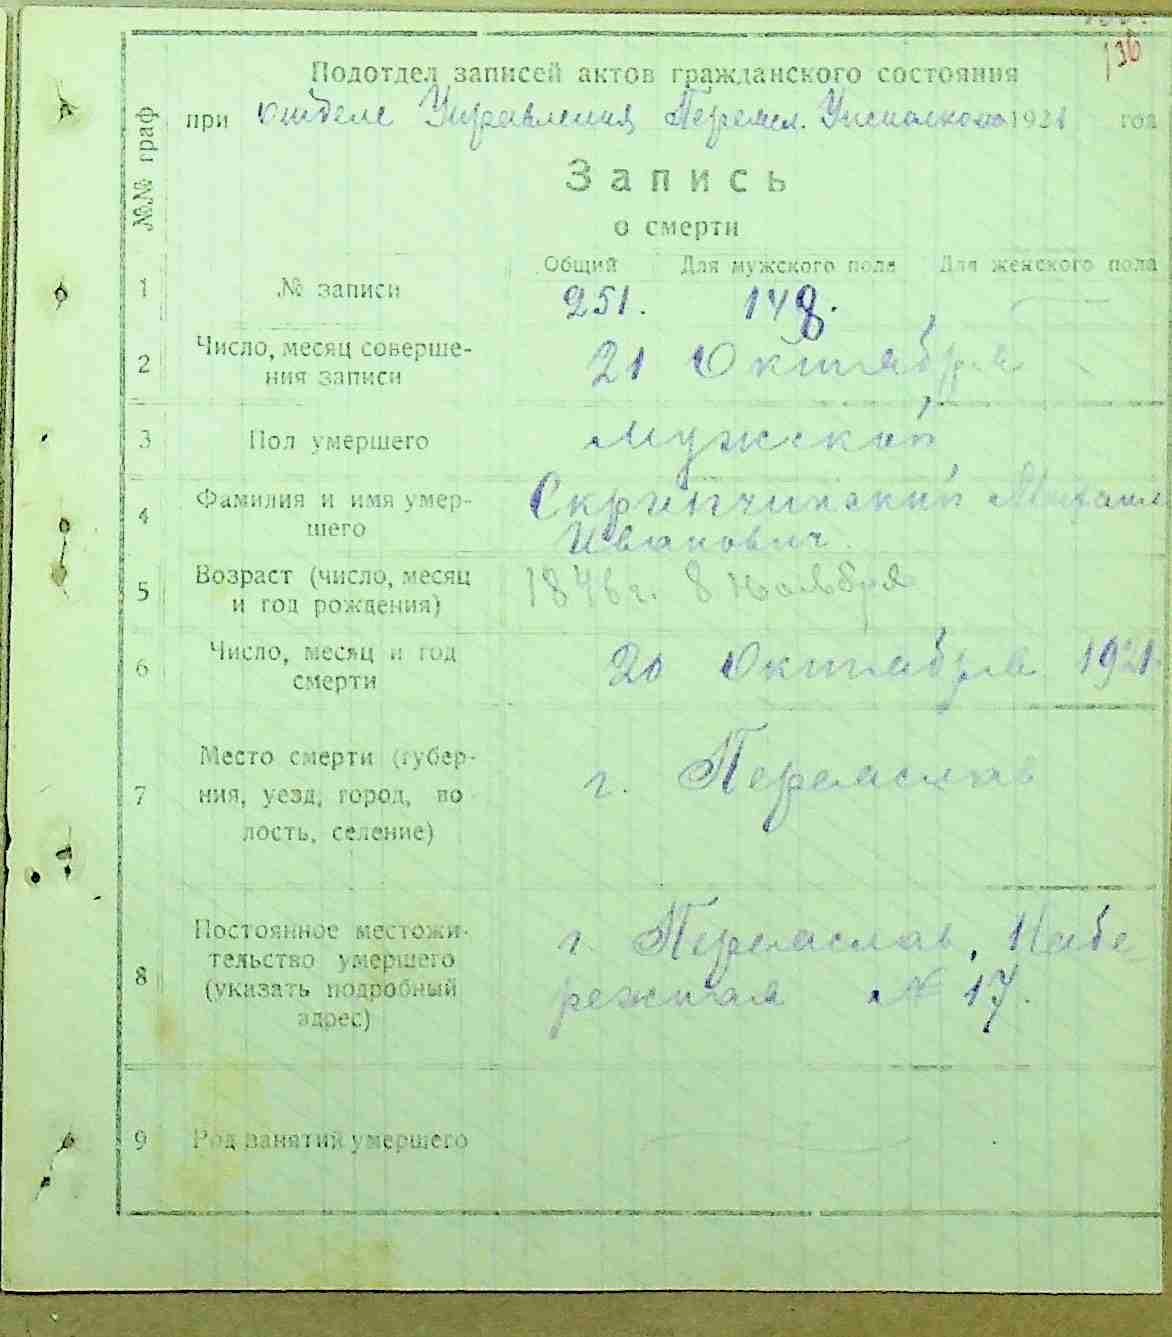 136
Подотдел записей актов гражданского состояния
при отделе Управления Переясл. Уисполкома 1921 год
№№ граф
Запись
о смерти
Общий Для мужского пола Для женского пола
1 № записи 251. 148. —
2 Число, месяц соверше-
ния записи 21 Октября
3 Пол умершего мужской
4 Фамилия и имя умер-
шего Скрипчинский Михаил
Иванович
5 Возраст (число, месяц
и год рождения) 1846 г. 8 Ноября
6 Число, месяц и год
смерти 20 Октября 1921.
7 Место смерти (губер-
ния, уезд, город, во-
лость, селение) г. Переяслав
8 Постоянное местожи-
тельство умершего
(указать подробный
адрес) г. Переяслав, Набе-
режная № 17.
9 Род занятий умершего —